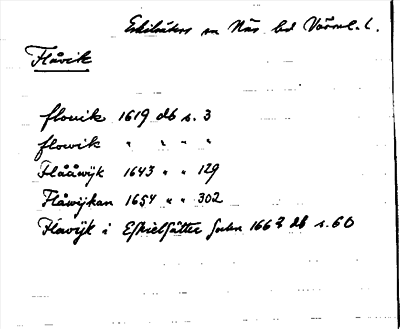 Eskilsäters sn Näs hd Värml. l.
Flåvik
flouik 1619 db s. 3
flowik " " " "
Flååwijk 1643 " " 129
Flåwijkan 1654 " " 302
Flåvijk i Eskielsätter 1662 db s. 60